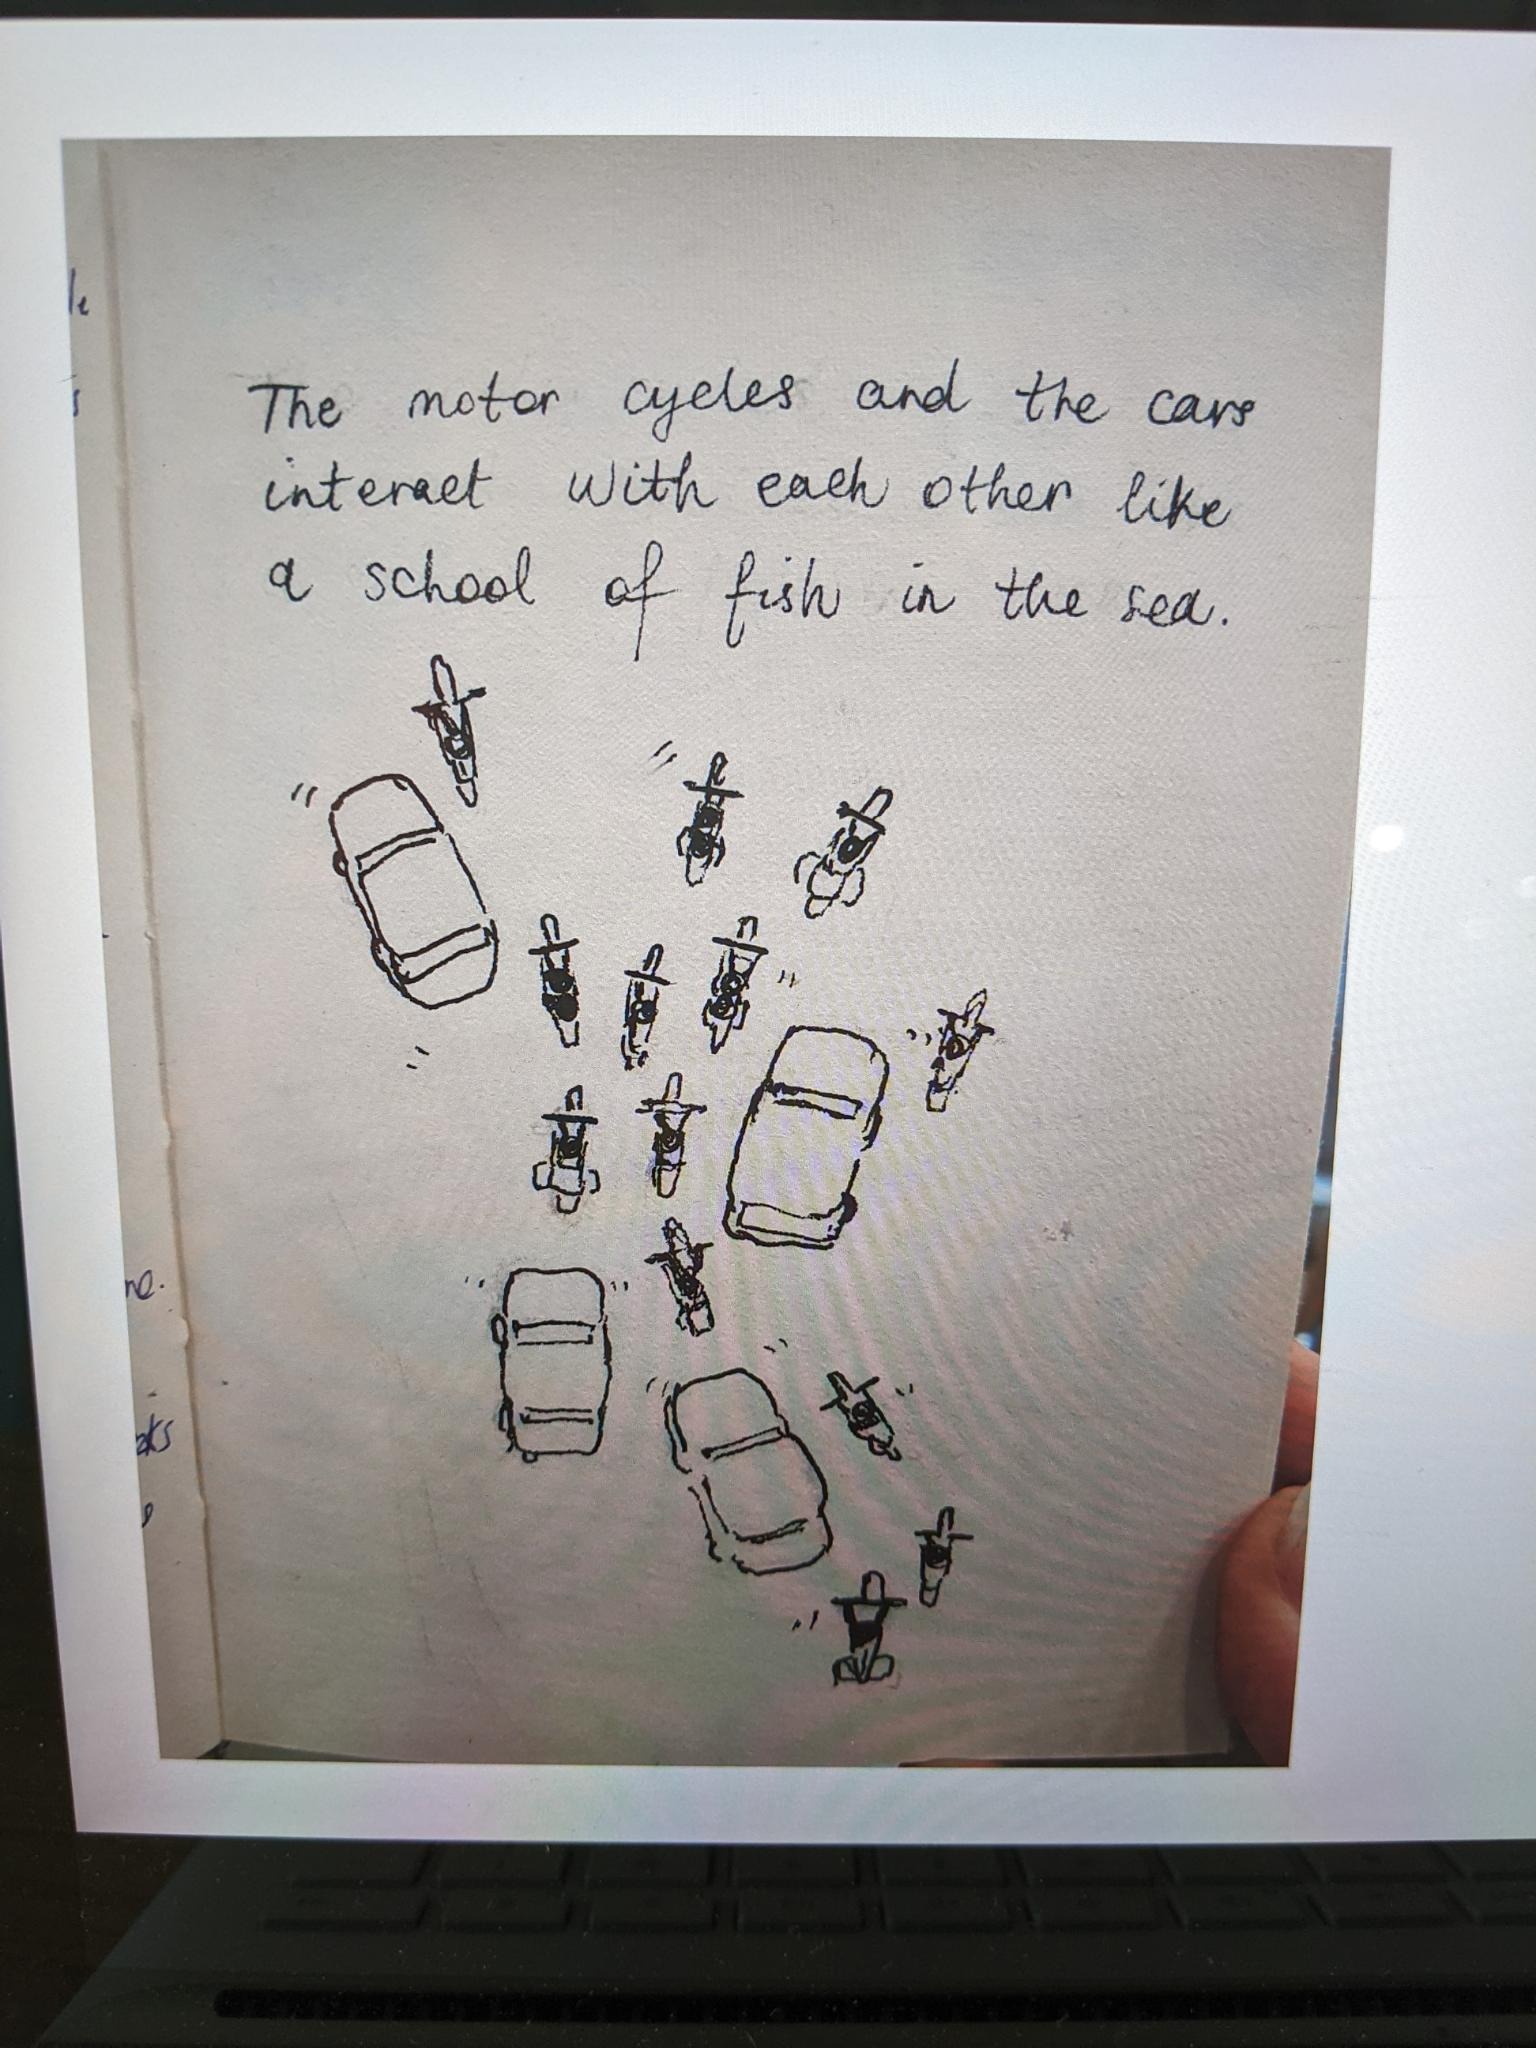 The motor cycles and the cars
interact with each other like
a school of fish in the sea.